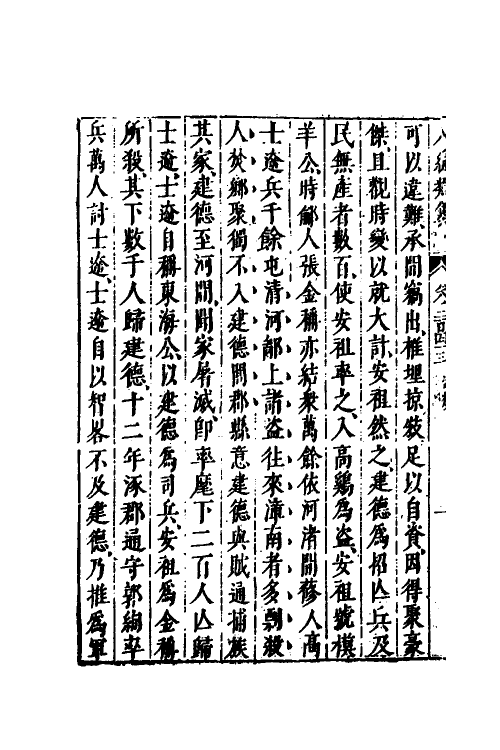 可以違難、承間竊出、椎埋掠敓、足以自資、因得聚豪
傑、且觀時變以就大計、安祖然之、建德為招亾兵及
民無產者數百、使安祖率之、入高鷄為盜、安祖號模
羊公、時鄃人張金稱亦結衆萬餘依河渚間蓨人高
士達兵千餘屯清河鄙上諸盜往來漳南者多剽殺
人焚鄉聚獨不入建德閭郡縣意建德與賊通捕族
其家、建德至河間、聞家屠滅、卽率麾下二百人亾歸
士達、士達自稱東海公、以建德為司兵、安祖為金稱
所殺、其下數千人歸建德、十二年涿郡通守郭絢率
兵萬人討士達、士達自以智畧不及建德、乃推為軍